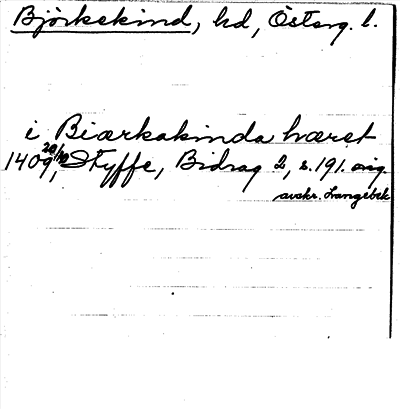 Björkekind, hd, Österg. l.
i Biærkakinda hæret
1409 20/10, Styffe, Bidrag 2, s. 191. orig.
avskr. Langebek